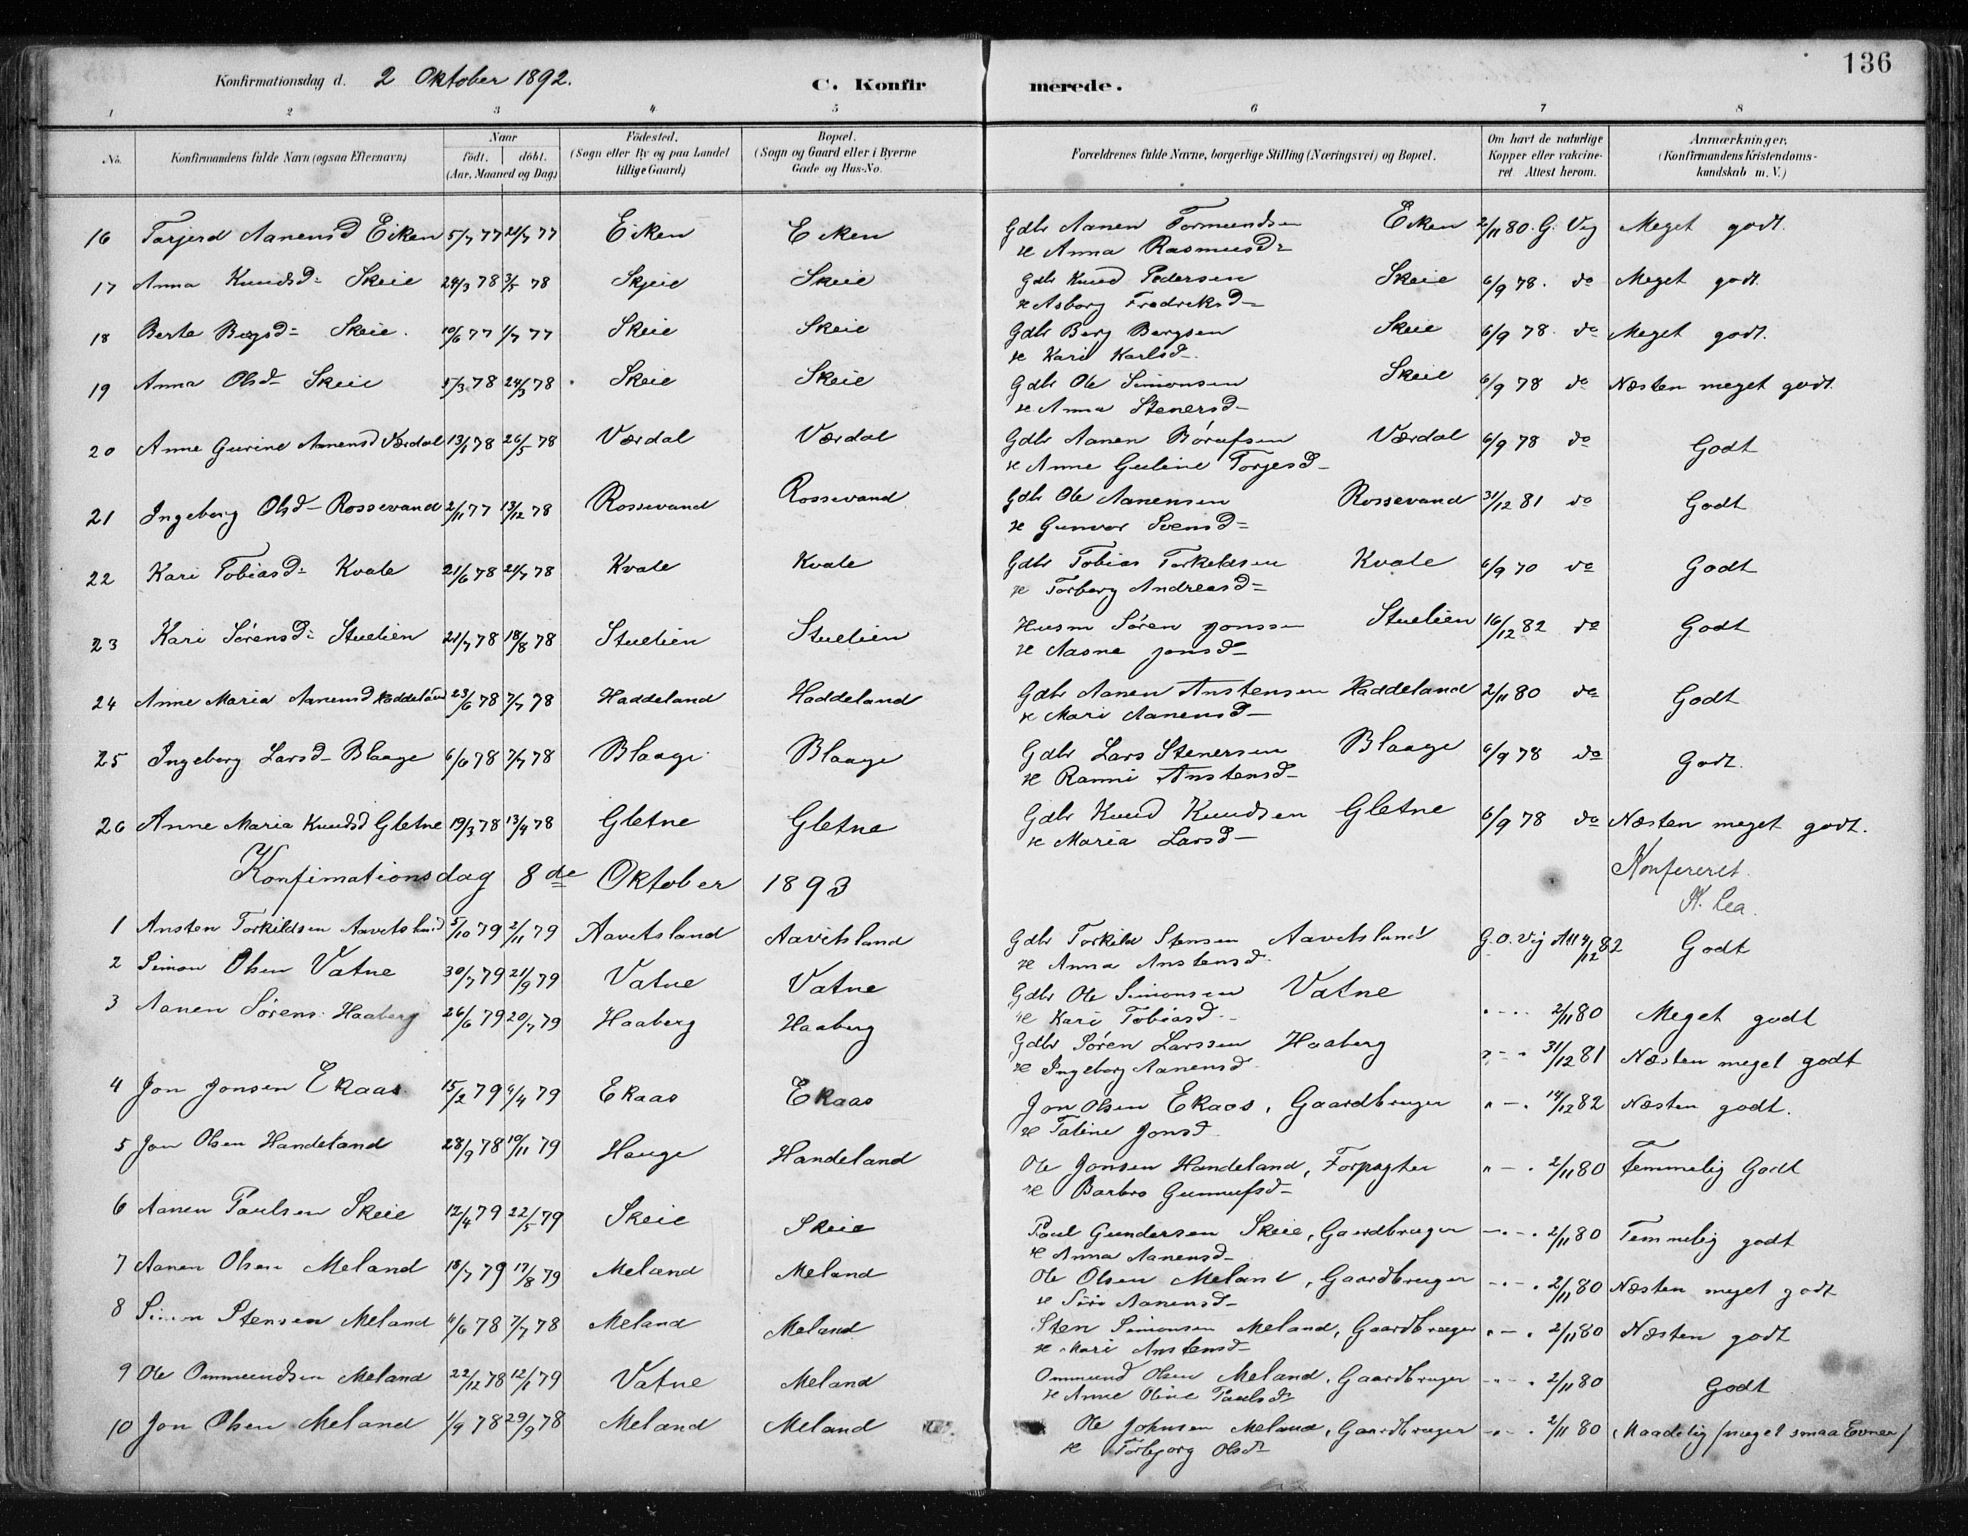 136
Konfirmationsdag d. 2 Oktober 1892. C. Konfirmerede.
1 2 3 4 5 6 7 8
No. Konfirmandens fulde Navn (ogsaa Efternavn) Naar født. døbt. (Aar, Maaned og Dag) Fødested. (Sogn eller By og paa Landet tillige Gaard) Bopæl. (Sogn og Gaard eller i Byerne Gade og Hus-No. Forældrenes fulde Navne, borgerlige Stilling (Næringsvei) og Bopæl. Om havt de naturlige Kopper eller vakcineret Attest herom. Anmærkninger. (Konfirmandens Kristendomskundskab m. V.)
16 Tarjerd Aanensd Eiken 5/7 77 21/7 77 Eiken Eiken Gdbr Aanen Tormundsen Eiken 2/11 80. G. Vig Meget godt.
H Anna Rasmusd=
17 Anna Knudsd= Skeie 24/3 78 3/5 78 Skjeie Skeie Gdbr Knud Pedersen Skeie 6/9 78. do Meget godt.
H Asborg Fredriksd=
18 Berte Bergsd= Skeie. 10/6 77 1/7 77 Skeie Skeie Gdbr Berg Bergsen Skeie 6/9 78. do Meget godt.
H Kari Karlsd-
19 Anna Olsd- Skeie 5/3 78 24/3 78 Skeie Skeie Gdbr Ole Simonsen Skeie 6/9 78 do Næsten meget godt.
H Anna Stenersd-
20 Anne Gurine Aanensd Værdal 13/1 78 26/5 78 Værdal Værdal Gdbr Aanen Børufsen Værdal 6/9 78 do Godt
H Anne Guline Torgesd-
21 Ingeborg Olsd- Rossevand 2/11 77 13/12 78 Rossevand Rossevand Gdbr Ole Aanensen Rossevand 31/12 81 do Godt
H Gunvor Svensd=
22 Kari Tobiasd= Kvale 21/6 78 21/7 78 Kvale Kvale Gdbr Tobias Torkeldsen Kvale 6/9 70 do Godt
H Torborg Andreasd=
23 Kari Sørensd= Stuelien 21/7 78 18/8 78 Stuelien Stuelien Husm Søren Jonssen Stuelien 16/12 82 do Godt
H Aasne Jonsd-
24 Anne Maria Aanensd Haddeland 23/6 78 7/7 78 Haddeland Haddeland Gdbr Aanen Anstensen Haddeland 2/11 80 do Godt
H Mari Aanensd-
25 Ingeborg Larsd- Blaage 6/6 78 7/7 78 Blaage Blaage Gdbr Lars Stenersen Blaage 6/9 78 do Godt.
H Ranni Anstensd-
26 Anne Maria Knudsd Gletne 19/3 78 13/4 78 Gletne Gletne Gdbr Knud Knudsen Gletne 6/9 78 do Næsten meget godt.
H Maria Larsd-
Konfimationsdag 8de Oktober 1893 Konfereret.
K. Lea.
1 Ansten Torkildsen Aavetsland 5/10 79 2/11 79 Aavetsland Aavitsland Gdbr Torkild Stensen Aavetsland G.O. Vig Att 4/12 82 Godt
H Anna Anstensd.
2 Simon Olsen Vatne 30/7 79 21/9 79 Vatne Vatne Gdbr Ole Simonsen Vatne " - - 2/11 80 Meget godt
H Kari Tobiasd.
3 Aanen Sørens. Haaberg 26/6 79 20/7 79 Haaberg Haaberg Gdbr Søren Larssen Haaberg " - " 31/12 81 Næsten meget godt
H Ingeborg Aanensd.
4 Jon Jonsen Ekaas 15/2 79 6/4 79 Ekaas Ekaas Jon Olsen Ekaas, Gaardbruger " - . 14/12 82 Næsten godt.
H Taline Jonsd.
5 Jon Olsen Handeland 28/9 78 19/11 79 Hauge Handeland Ole Jonsen Handeland, Forpagter " - . 2/11 80 Temmelig Godt
H Barbro Gunnufsd-
6 Aanen Paulsen Skeie 12/4 79 22/5 79 Skeie Skeie Paul Gundersen Skeie, Gaardbruger - . - . 2/11 80 Temmelig godt
H Anna Aanensd-
7 Aanen Olsen Meland 18/7 79 17/8 79 Meland Meland Ole Olsen Meland, Gaardbruger - . - . 2/11 80 Næsten meget godt
H Siri Aanensd-
8 Simon Stensen Meland 6/6 78 7/7 78 Meland Meland Sten Simonsen Meland, Gaardbruger " - . 2/11 80 Næsten godt
H Mari Anstensd-
9 Ole Ommundsen Meland 22/12 78 12/1 79 Vatne Meland Ommund Olsen Meland, Gaardbruger - - . 2/11 80 Godt
H Anne Oline Paulsdt
10 Jon Olsen Meland 1/9 78 29/9 78 Meland Meland Ole Johnsen Meland, Gaardbruger - . - . 2/11 80 Maadelig /meget smaa Evner/
H Torbjorg Olsdt